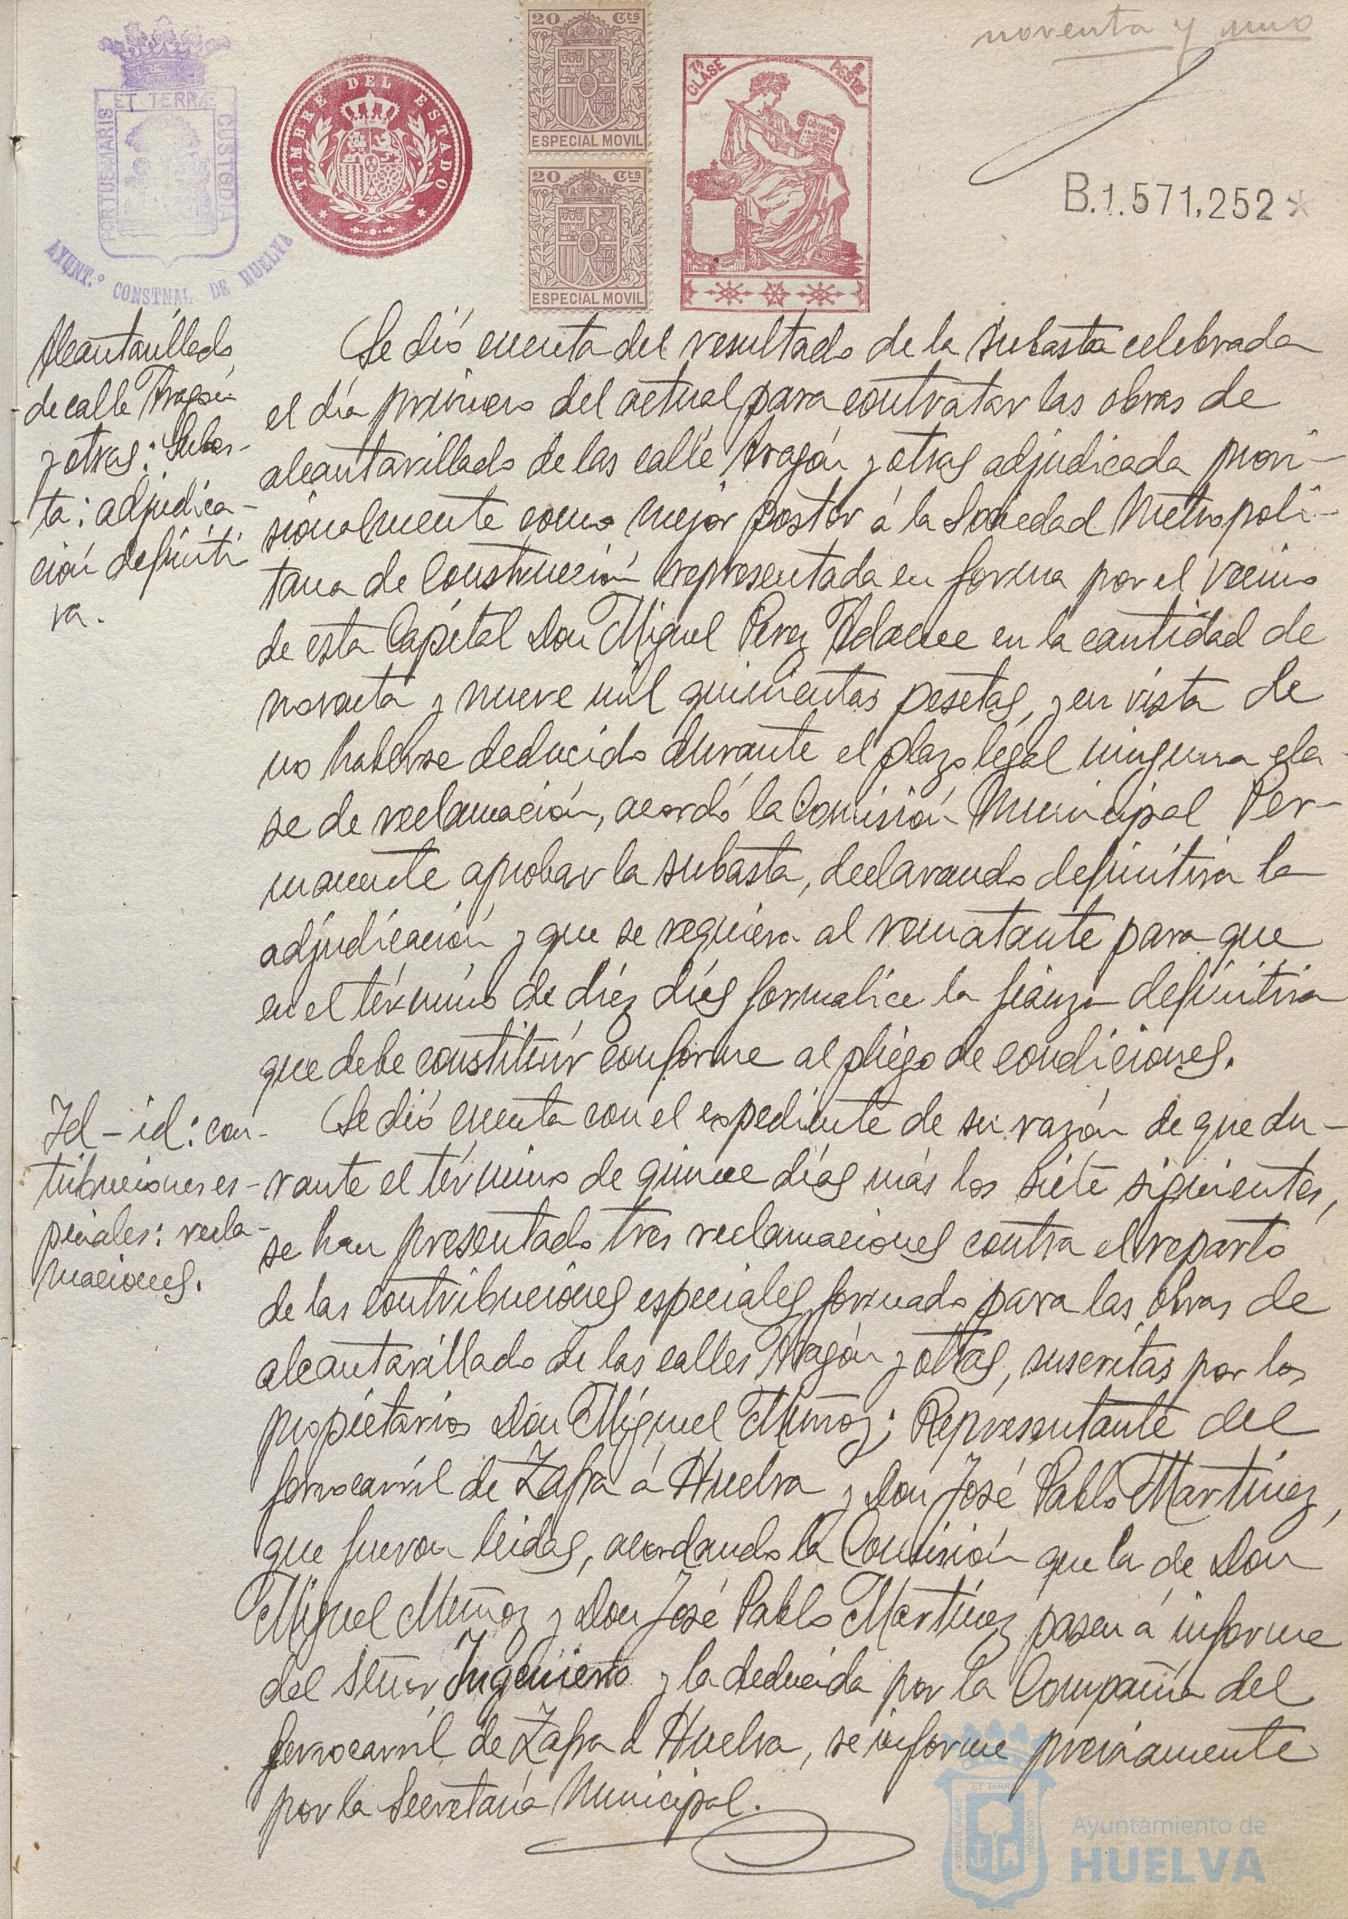 noventa y uno
PORTUS MARIS ET TERRÆ CUSTODIA
AYUNT.º CONSTNAL DE HUELVA
TIMBRE DEL ESTADO
20 Cts
ESPECIAL MOVIL
20 Cts
ESPECIAL MOVIL
CLASE
B.1.571,252*
Alcantarillado
de calle Aragón
y otras: Subas-
ta: adjudica-
ción definiti
va.
Se dió cuenta del resultado de la subasta celebrada
el día primero del actual para contratar las obras de
alcantarillado de las calle Aragón y otras adjudicada provi-
sionalmente como mejor postor á la Sociedad Metropoli-
tana de Construcción representada en forma por el vecino
de esta Capital Don Miguel Perez en la cantidad de
noventa y nueve mil quinientas pesetas, y en vista de
no haberse deducido durante el plazo legal ninguna cla-
se de reclamación, acordó la Comisión Municipal Per-
manente aprobar la subasta, declarando definitiva la
adjudicación y que se requiera al rematante para que
en el término de diez días formalice la fianza definitiva
que debe constituir conforme al pliego de condiciones.
Id-id: con-
tribuciones es-
peciales: recla-
maciones.
Se dió cuenta con el expediente de su razón de que du-
rante el término de quince días más los siete siguientes,
se han presentado tres reclamaciones contra el reparto
de las contribuciones especiales formado para las obras de
alcantarillado de las calles Aragón y otras, suscritas por los
propietarios Don Miguel Muñoz; Representante del
ferrocarril de Zafra á Huelva y Don José Pablo Martínez,
que fueron leidas, acordando la Comisión que la de Don
Miguel Muñoz y Don José Pablo Martínez pasen á informe
del señor Ingeniero y la deducida por la Compañía del
ferrocarril de Zafra á Huelva, se informe previamente
por la Secretaría Municipal.
Ayuntamiento de
HUELVA